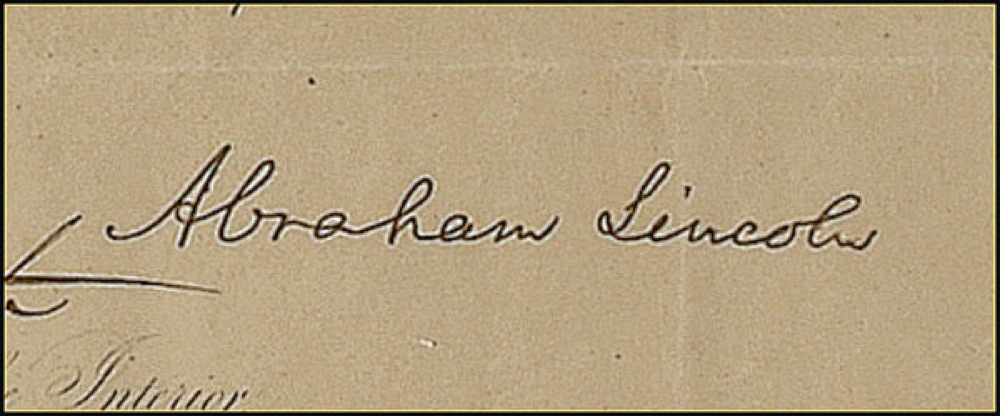 Abraham Lincoln
Interior